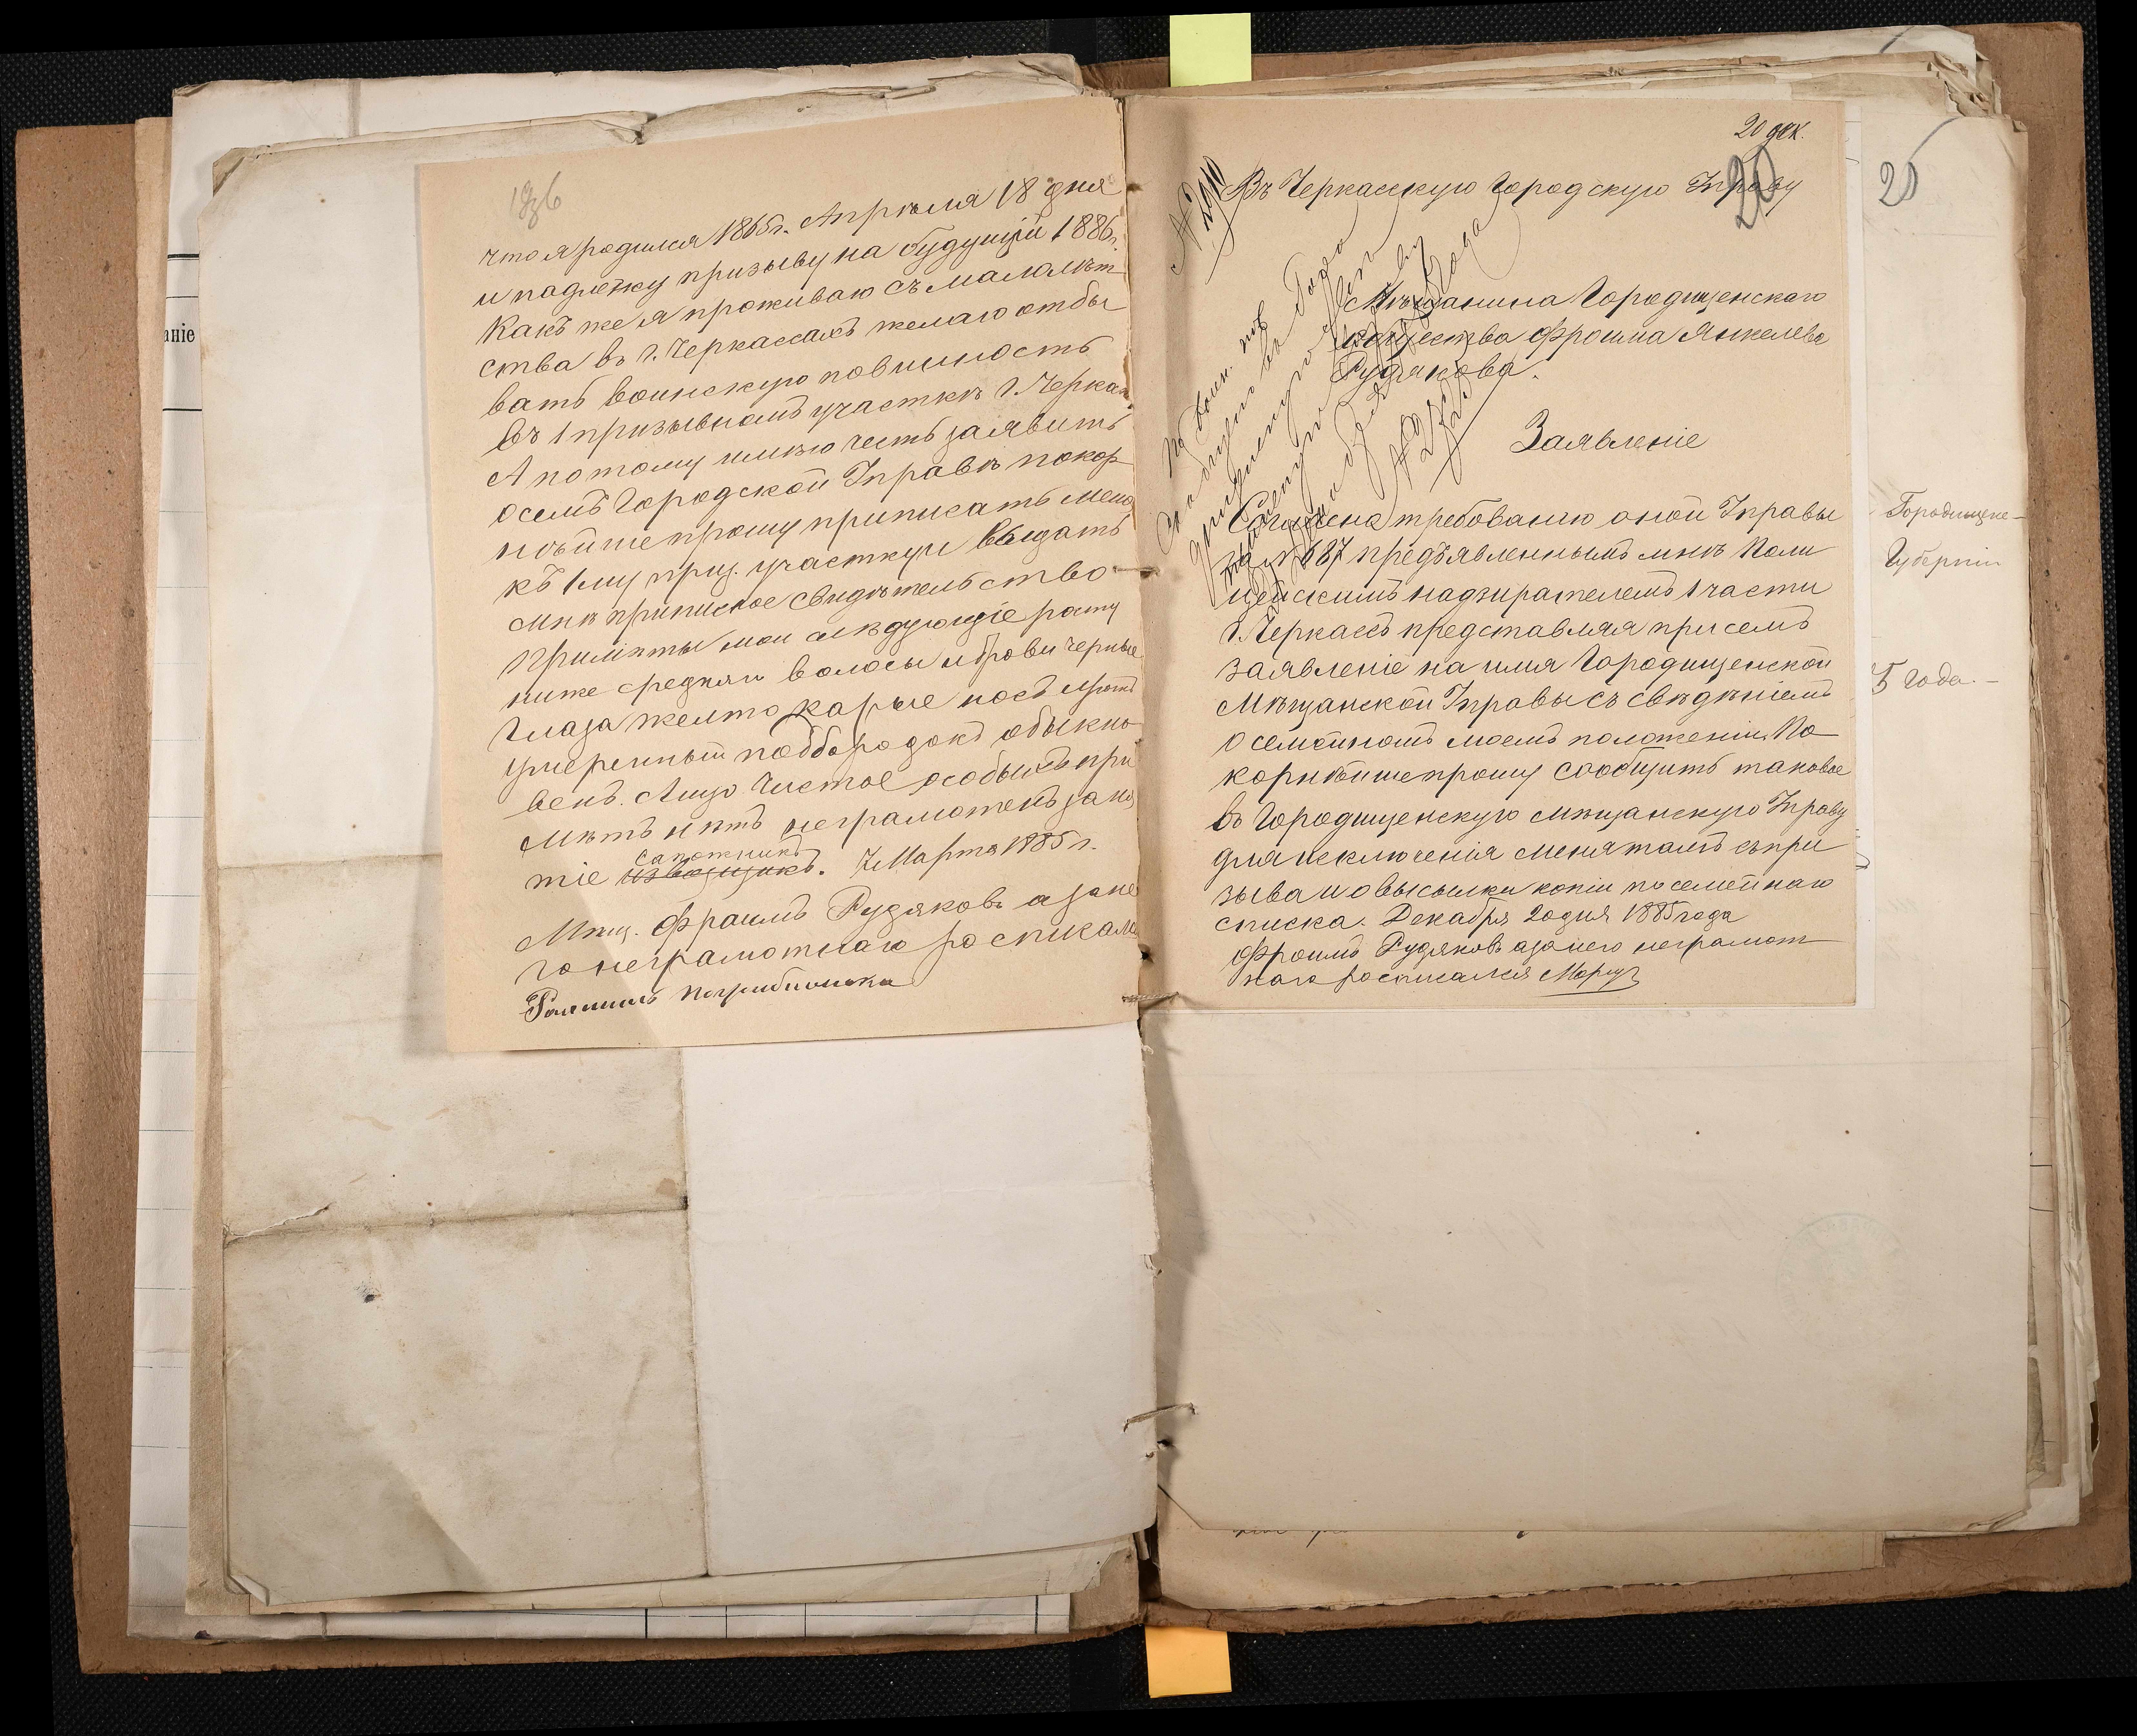 что я родился 1865 г. Апрѣля 18 дня
и падлежу призыву на будущій 1886 г.
Какъ же я проживаю съ малолѣт
ства въ г. Черкассахъ желаю отбы
вать воинскую повинность
въ 1 призывномъ участкѣ г. Черкас
А потому имѣю честь заявить
о семъ Городской Управѣ покор
нѣйше прошу приписать меня
къ 1му приз. участку и выдать
мнѣ приписное свидѣтельство
Примѣты мои слѣдующіе росту
ниже средняго волосы и брови черные
Глаза желто карые носъ и ротъ
умеренный подбородокъ обыкно
венъ. Лицо чистое особыхъ при
мѣтъ нѣтъ неграмотенъ заня
сапожникъ
тіе извозщикъ. 7 Марта 1885 г.
Мѣщ. Фраимъ Рудяковъ а за не
го неграмотнаго росписался
20 дек.
20
25
Въ Черкасскую Городскую Управу
Мѣщанина Городищенскаго
общества Фроима Янкелева
Рудякова.
Заявленіе
Согласно требованію оной Управы
за № 687 предъявленнымъ мнѣ Поли
цейскимъ надзирателемъ 1 части
г. Черкассъ представляя при семъ
заявленіе на имя Городищенской
Мѣщанской Управы съ свѣдѣніемъ
о семейномъ моемъ положеніи. По
корнѣйше прошу сообщить таковое
въ Городищенскую мѣщанскую Управу
для исключенія меня тамъ съ при
зыва и о высылки копіи посемейнаго
списка. Декабря 20 дня 1885 года
Фроимъ Рудяковъ а за него неграмот
наго росписался
Городищене-
Губерніи
5 года.-
ніе